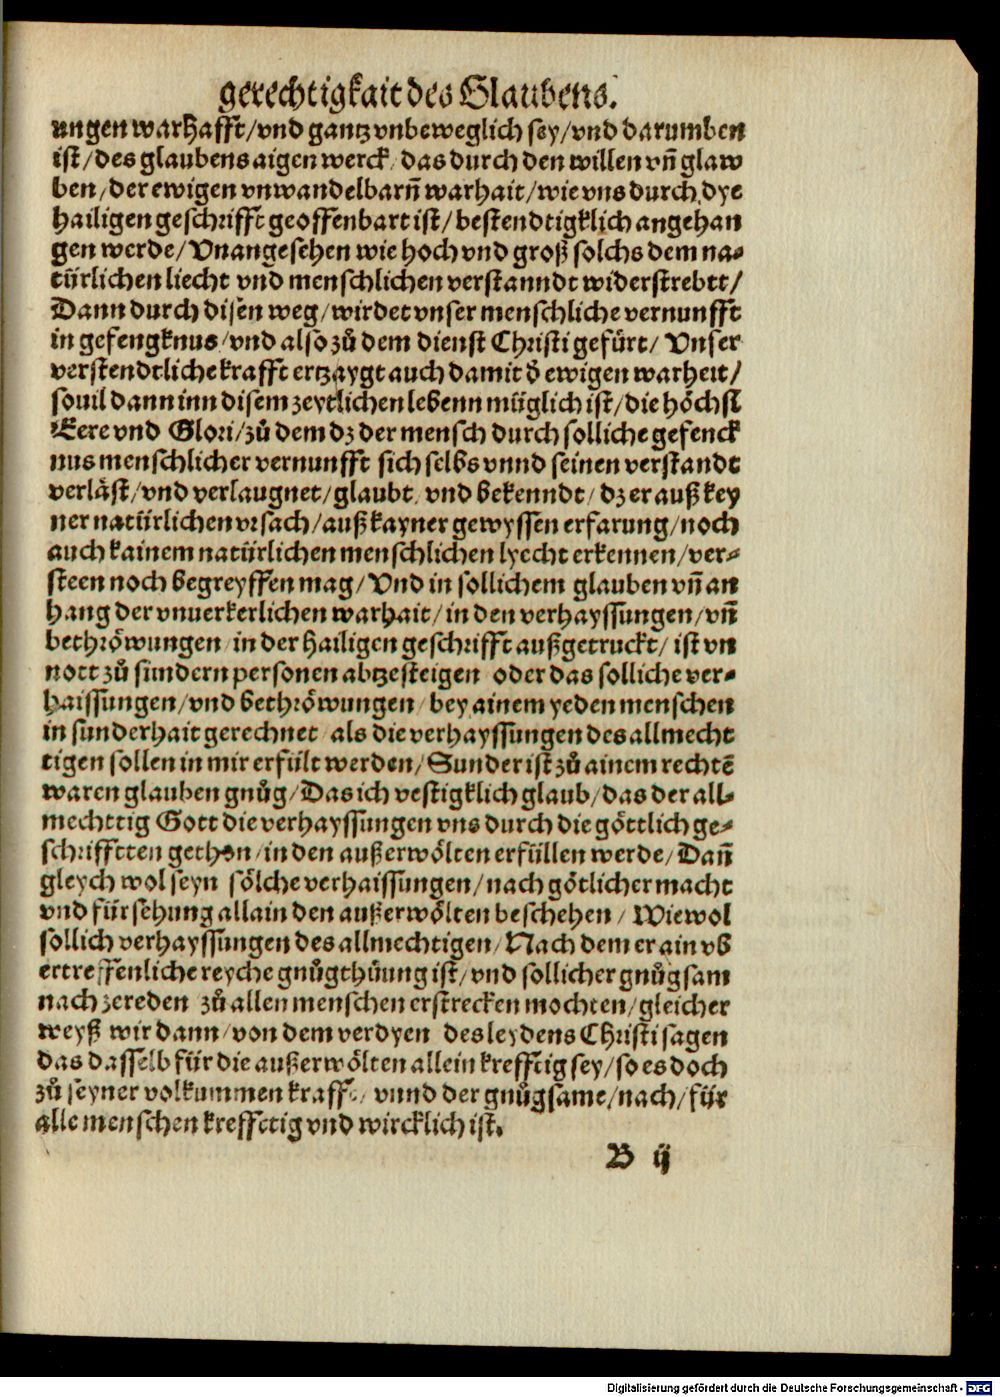 gerechtigkait des Glaubens.
ungen warhafft/vnd gantz vnbeweglich sey/vnd darumben
ist/des glaubens aigen werck/das durch den willen vñ glaw
ben/der ewigen vnwandelbarñ warhait/wie vns durch dye
hailigen geschrifft geoffenbart ist/bestendtigklich angehan
gen werde/Vnangesehen wie hoch vnd groß solchs dem na-
türlichen liecht vnd menschlichen verstanndt widerstrebtt/
Dann durch disen weg/wirdet vnser menschliche vernunfft
in gefengknus/vnd also zů dem dienst Christi gefürt/Vnser
verstendtliche krafft ertzaygt auch damit d̄ ewigen warheit/
souil dann inn disem zeytlichen lebenn müglich ist/die höchst
Eere vnd Glori/zů dem dz der mensch durch solliche gefenck
nus menschlicher vernunfft sich selbs vnnd seinen verstandt
verläst/vnd verlaugnet/glaubt/vnd bekenndt/dz er auß key
ner natürlichen vrsach/auß kayner gewyssen erfarung/noch
auch kainem natürlichen menschlichen lyecht erkennen/ver-
steen noch begreyffen mag/Vnd in sollichem glauben vñ an
hang der vnuerkerlichen warhait/in den verhayssungen/vñ
bethröwungen/in der hailigen geschrifft außgetruckt/ist vn
nott zů sundern personen abtzesteigen oder das solliche ver-
haissungen/vnd bethröwungen/bey ainem yeden menschen
in sunderhait gerechnet als die verhayssungen des allmecht
tigen sollen in mir erfült werden/Sunder ist zů ainem rechtē
waren glauben gnůg/Das ich vestigklich glaub/das der all-
mechttig Gott die verhayssungen vns durch die göttlich ge-
schrifftten gethon/in den außerwölten erfüllen werde/Dañ
gleych wol seyn sölche verhaissungen/nach götlicher macht
vnd fürsehung allain den außerwölten beschehen/Wiewol
sollich verhayssungen des allmechtigen/Nach dem er ain vb
ertreffenliche reyche gnůgthůung ist/vnd sollicher gnůgsam
nach zereden zů allen menschen erstrecken mochten/gleicher
weyß wir dann/von dem verdyen des leydens Christi sagen
das dasselb für die außerwölten allein krefftig sey/so es doch
zů seyner volkummen krafft/vnnd der gnůgsame/nach/für
alle menschen krefftig vnd wircklich ist.
B ij
Digitalisierung gefördert durch die Deutsche Forschungsgemeinschaft - DFG